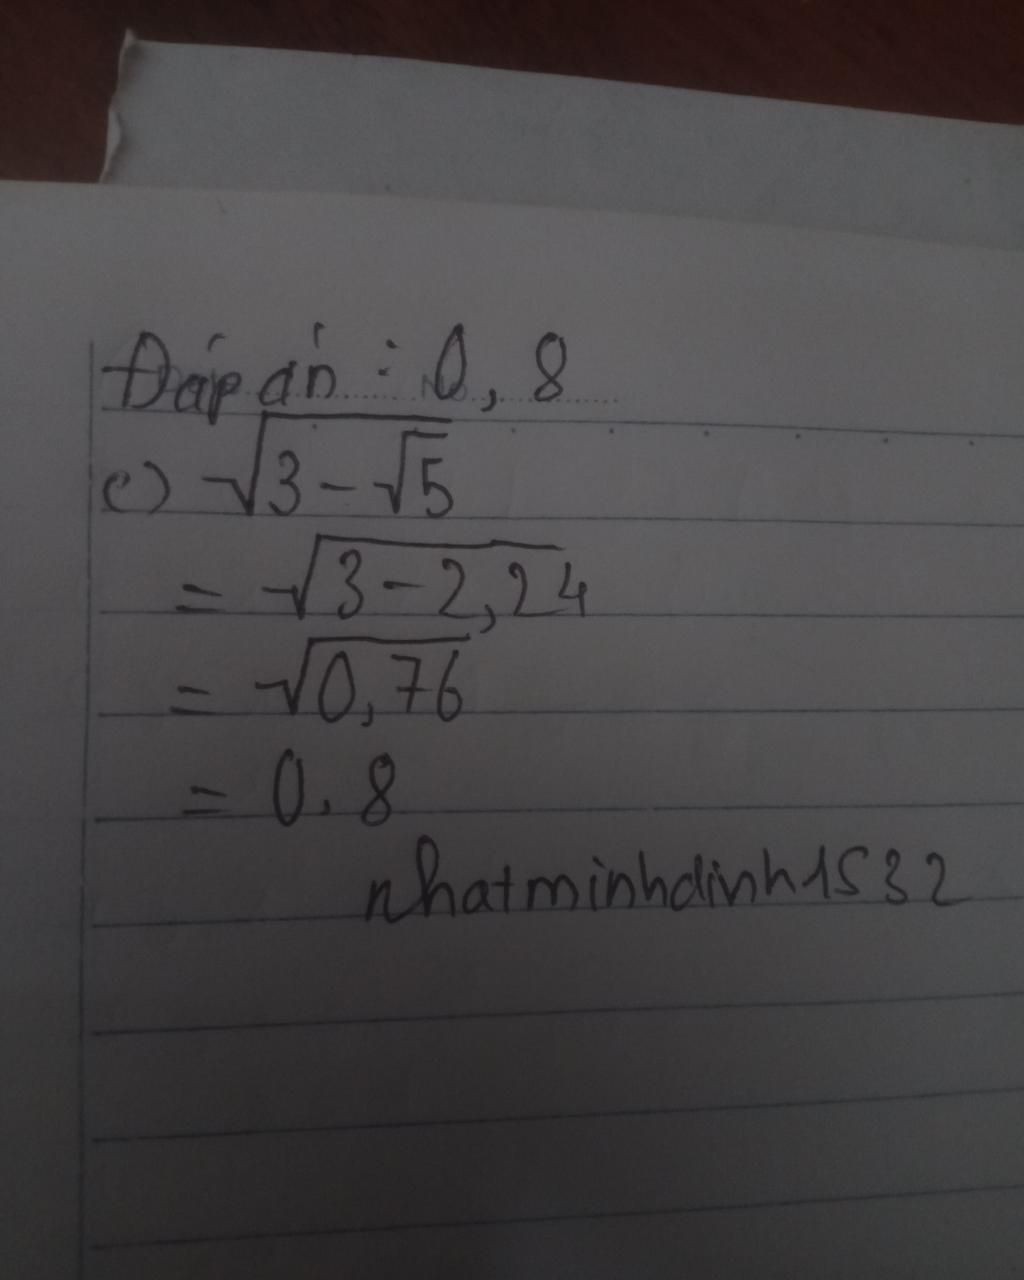 Đáp án : 0, 8
c) √3 - √5
= √3 - 2,24
= √0,76
= 0,8
nhatminhdinh1532